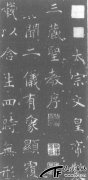 太宗文皇帝
三藏聖教序
聞二儀有像顯覆
載以含生四時無